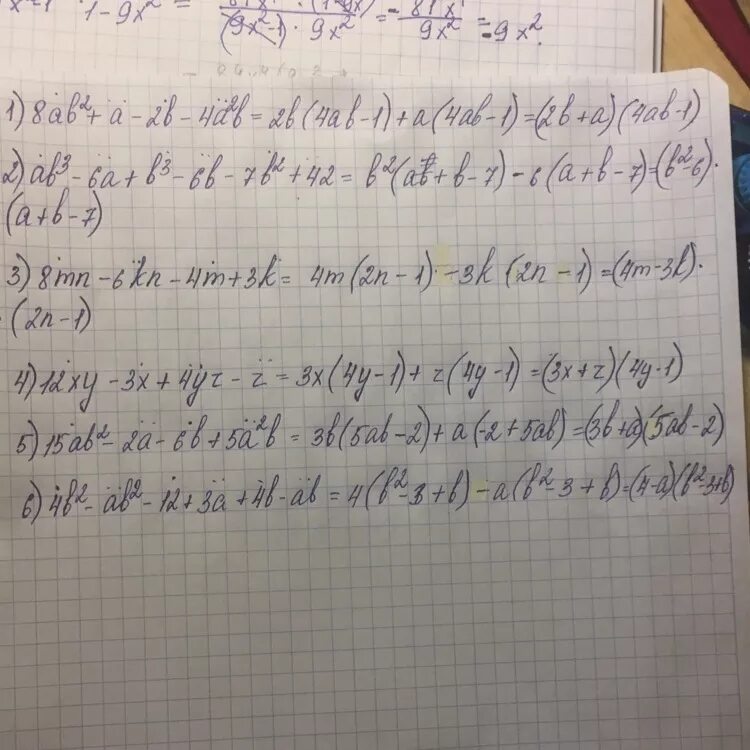 1 - 9x² = (9x²-1) · 9x² = - 81x / 9x² = -9x².
1) 8ab² + a - 2b - 4a²b = 2b(4ab-1) + a(4ab-1) = (2b+a)(4ab-1)
2) ab³ - 6a + b³ - 6b - 7b² + 42 = b²(ab + b - 7) - 6(a + b - 7) = (b²-6)·
(a+b-7)
3) 8mn - 6kn - 4m + 3k = 4m(2n-1) - 3k(2n-1) = (4m-3k)·
· (2n-1)
4) 12xy - 3x + 4yz - z = 3x(4y-1) + z(4y-1) = (3x+z)(4y-1)
5) 15ab² - 2a - 6b + 5a²b = 3b(5ab-2) + a(-2+5ab) = (3b+a)(5ab-2)
6) 4b² - ab² - 12 + 3a + 4b - ab = 4(b²-3+b) - a(b²-3+b) = (4-a)(b²-3+b)